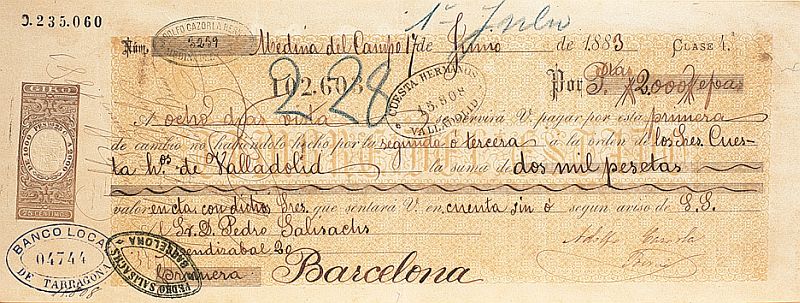 0.235.060
1º Julio
RODOLFO CAZORLA
3259
Núm.
Medina del Campo 17 de Junio de 1883 CLASE 4ª
102.608
228
CUESTA HERMANOS
15.908
VALLADOLID
Por Ptas 2000
GIRO
A ocho dias vista se servira V. pagar por esta primera
de cambio no habiendolo hecho por la segunda ó tercera a la orden de los Sres. Cues-
ta h.os de Valladolid la suma de dos mil pesetas
valor en cta con dichos Sres. que sentará V. en cuenta sin ó segun aviso de S.S.
Sr. D. Pedro Salisachs
Mendizabal 20
Primera
Barcelona
BANCO LOCAL
04744
DE TARRAGONA
PEDRO SALISACHS
BARCELONA